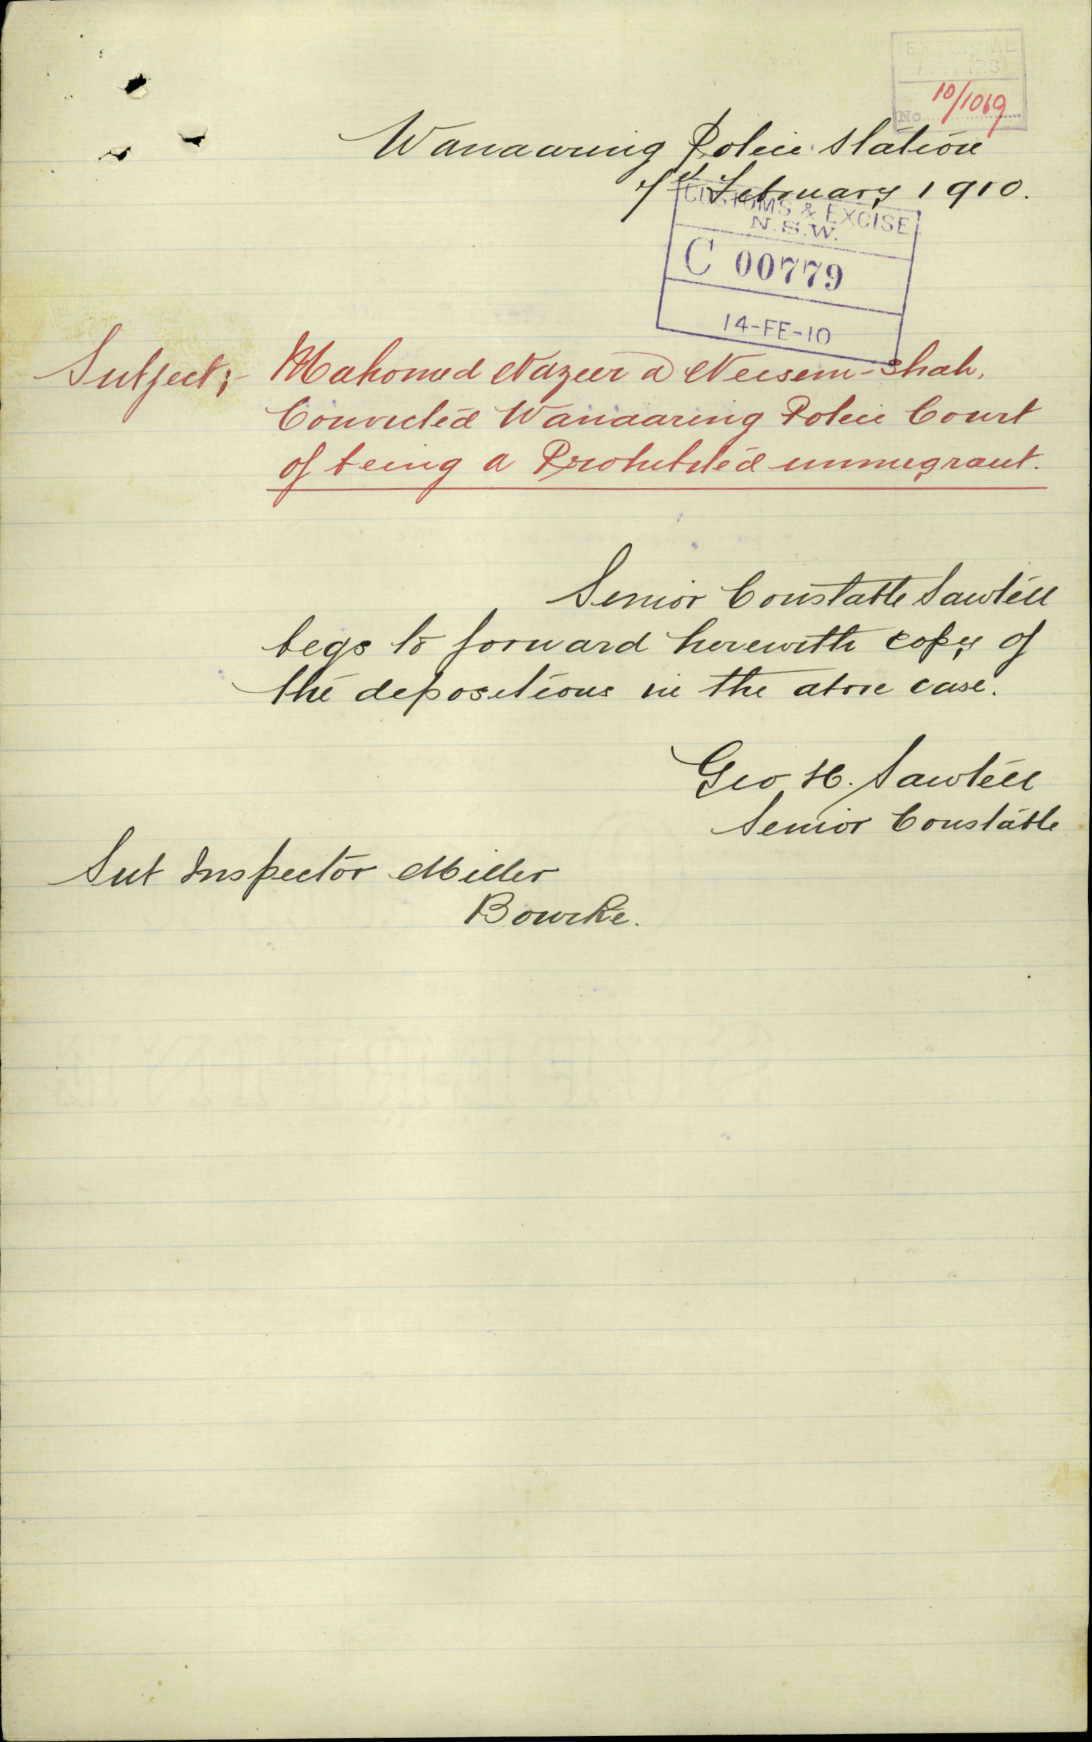 EXTERNAL
AFFAIRS
No 10/1069
Wanaaring Police Station
7th February 1910.
CUSTOMS & EXCISE
N.S.W.
C 00779
14-FE-10
Subject;- Mahomed Nazeer a Neisem-Shah.
Convicted Wanaaring Police Court
of being a Prohibited immigrant.
Senior Constable Sawtell
begs to forward herewith copy of
the depositions in the above case.
Geo H. Sawtell
Senior Constable
Sub Inspector Miller
Bourke.